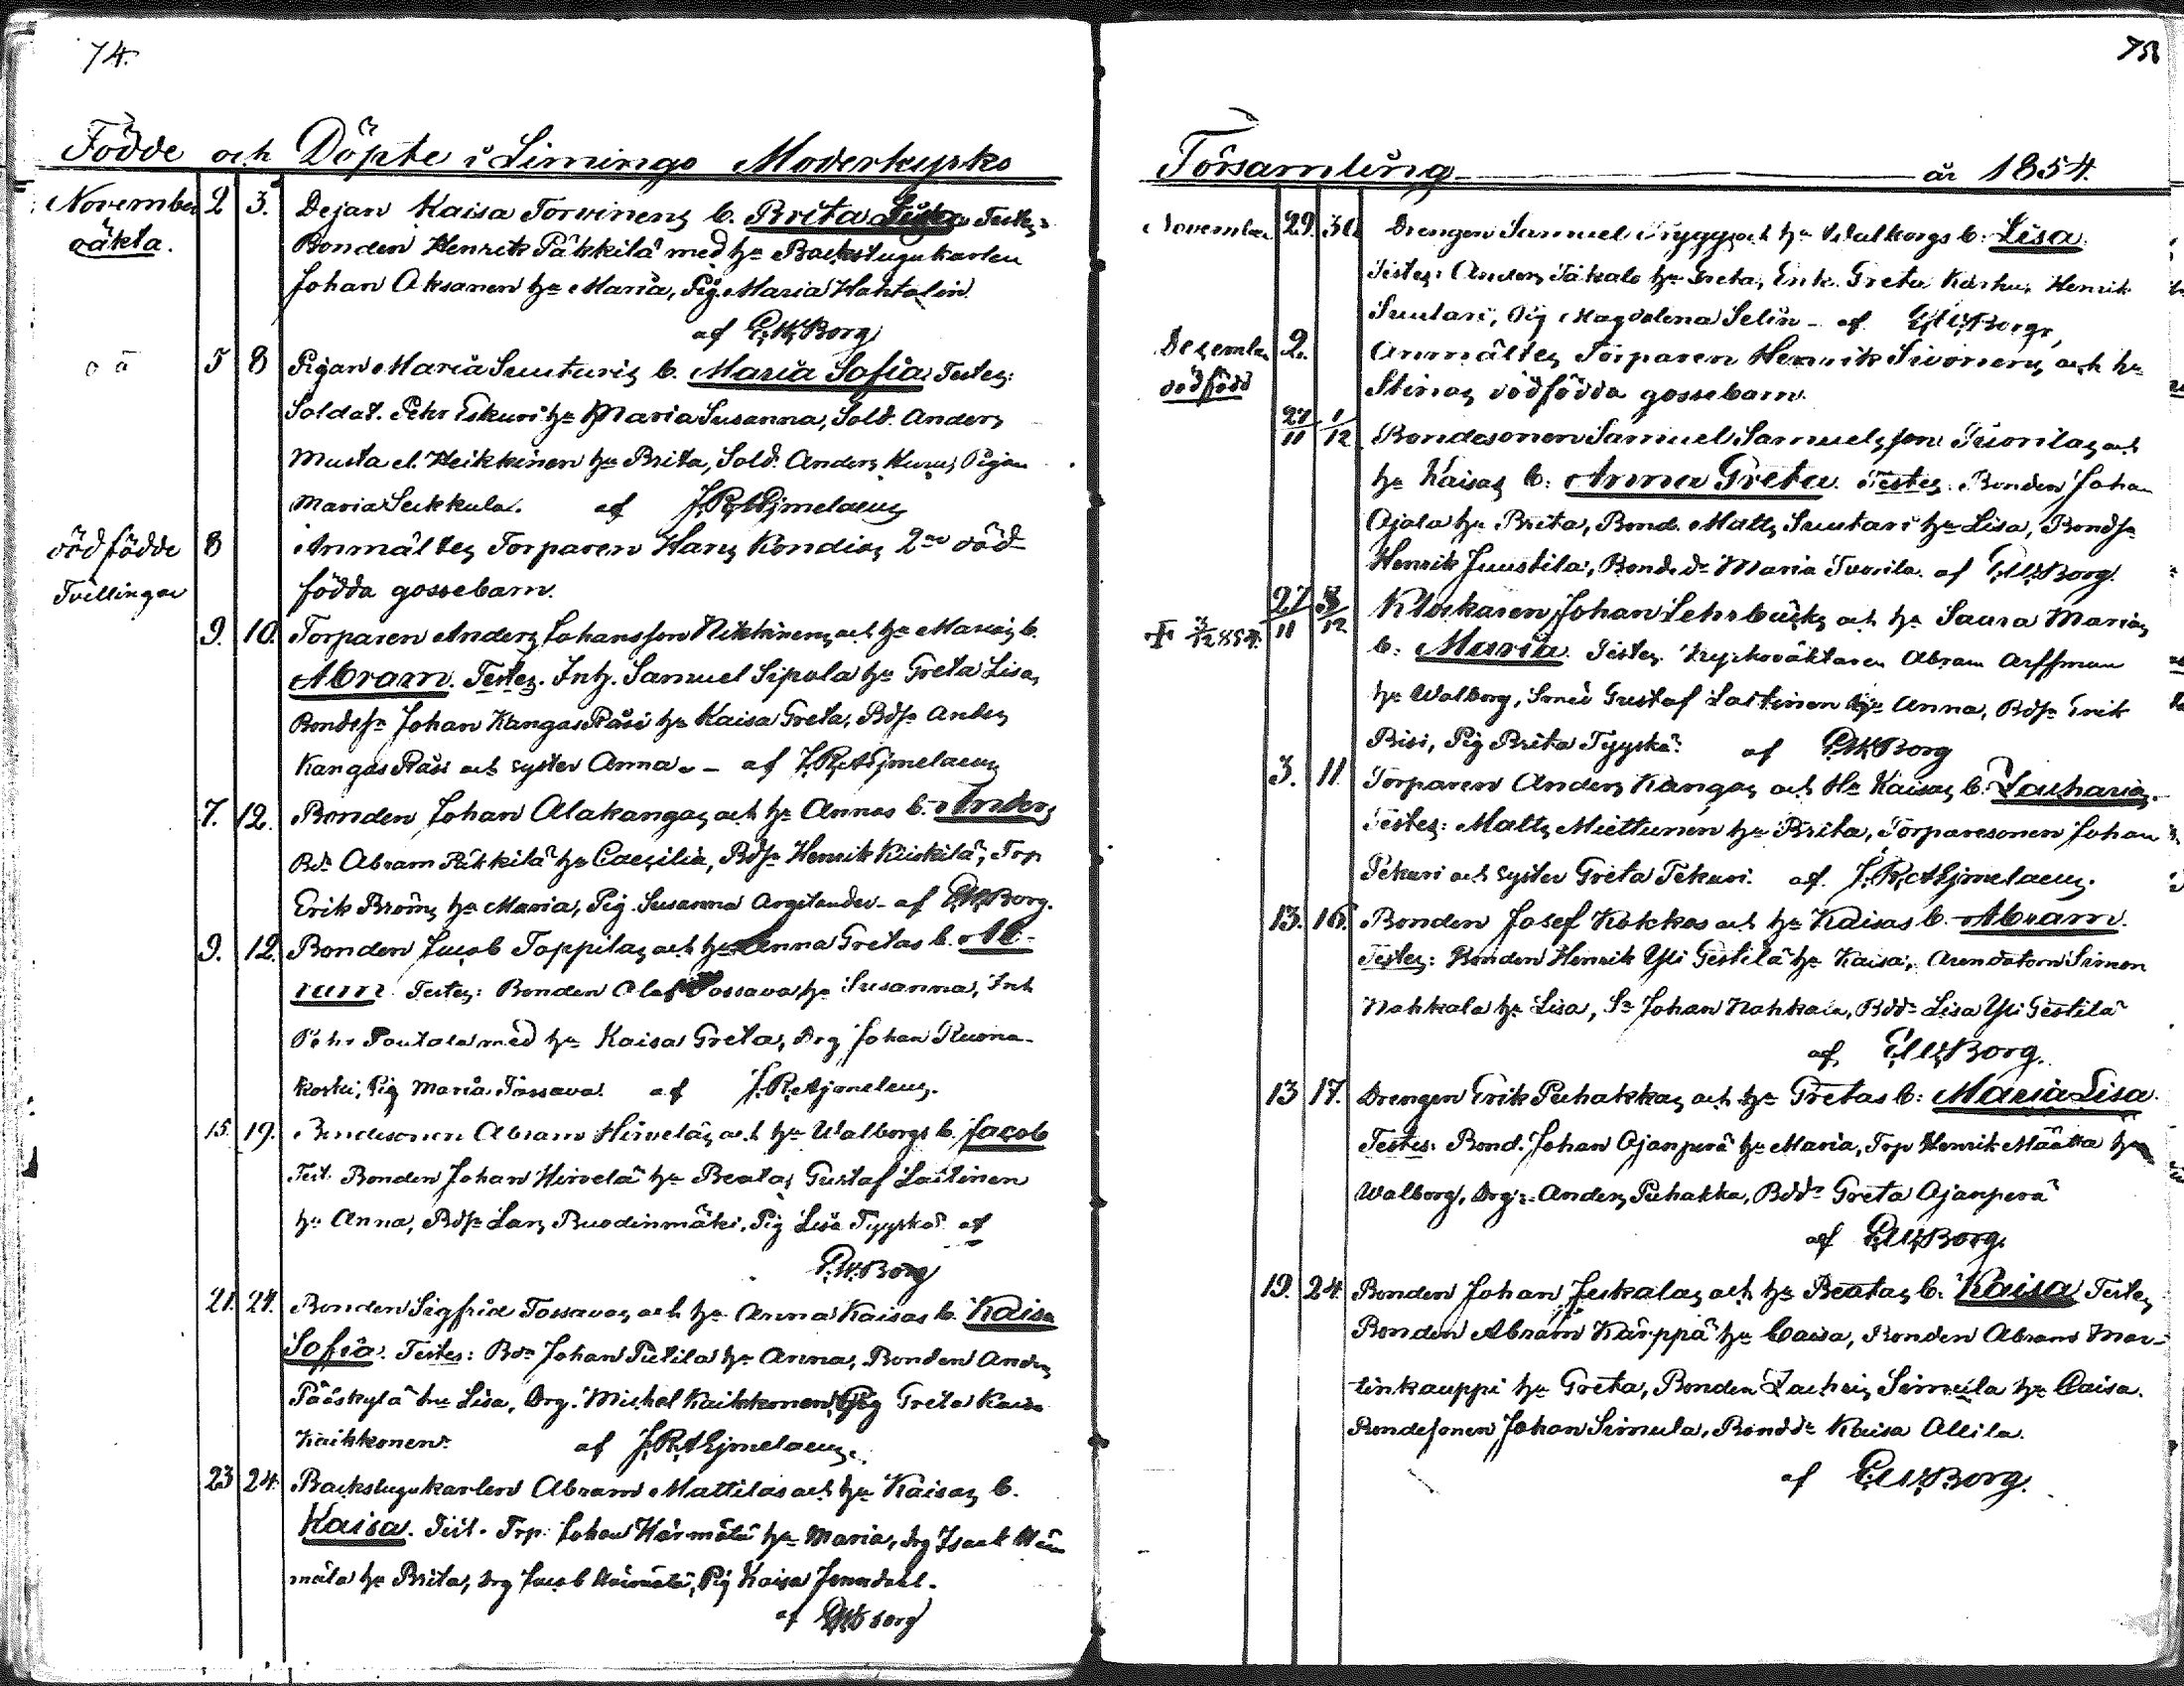 74.
Födde och Döpte i Limingo Moderkyrko
November 2 3. Pigan Kaisa Torvinens b. Brita Testes:
oäkta. Bonden Henrik Päkkilä med h:u Backstugukarlen
Johan Aksanen h:u Maria, Pig. Maria Hahtalin
af P.W. Borg
o ä 5 8 Pigan Maria Suutaris b. Maria Sofia Testes:
Soldat. Pehr Eskuri h:u Maria Susanna, Sold. Anders
Musta el. Heikkinen h:u Brita, Sold. Anders Pigan
Maria Seikkula. af J.R. Ajmelaeus
dödfödde 8 Anmältes Torparen Hans Kondias 2ne död-
Tvillingar födda gossebarn.
9. 10. Torparen Anders Johansson Nikkinens och h:u Marias b.
Abram. Testes. Inh. Samuel Sipola h:u Greta Lisa,
Bondes:n Johan Kangas h:u Kaisa Greta, Bds:n Anders
Kangas och syster Anna. – af J.R. Ajmelaeus
7. 12. Bonden Johan Alakangas och h:u Annas b. Anders
Bd:n Abram Päkkilä h:u Caesilia, Bds:n Henrik Kiiskilä, Trp
Erik Broms h:u Maria, Pig. Susanna – af P.W. Borg.
9. 12. Bonden Jacob Toppilas och h:u Anna Gretas b. Ab-
ram Testes: Bonden Olof Tossava h:u Susanna, Inh
Pehr med h:u Kaisa Greta, Drg Johan Kuona-
koski, Pig Maria Tossava. af J.R. Ajmelaeus.
15. 19. Bondesonen Abram Hirveläs och h:u Walborgs b. Jacob
Test. Bonden Johan Hirvelä h:u Beata, Gustaf Laitinen
h:u Anna, Bds:n Lars Ruodinmäki, Pig Lisa Tyyskä af
P.W. Borg
21. 24. Bonden Sigfrid Tossavas och h:u Anna Kaisas b. Kaisa
Sofia. Testes: Bd:n Johan h:u Anna, Bonden Anders
Pääskylä h:u Lisa, Drg. Michel Kaikkonen, Pig Greta Kaisa
Kaikkonen. af J.R. Ajmelaeus.
23 24. Backstugukarlen Abram Mattilas och h:u Kaisas b.
Kaisa. Test. Trp. Johan Härmälä h:u Maria, Drg Isack Här
mälä h:u Brita, Drg Jacob Härmälä, Pig Kaisa
af P.W. Borg
75
Församling år 1854.
November 29. 30. Drengen Samuel Trygg och h:u Walborgs b. Lisa.
Testes: Anders h:u Greta, Enk. Greta Henrik
Suutari, Pig Magdalena Selin – af P.W. Borg,
December 2. Anmältes Torparen Henrik Sivonens och h:u
dödfödd Stinas dödfödda gossebarn.
27/11 1/12 Bondesonen Samuel Samuelsson Tuorilas och
h:u Kaisas b: Anna Greta. Testes: Bonden Johan
Ojala h:u Brita, Bond. Matts Suutari h:u Lisa, Bonds:n
Henrik Juustila, Bonded:r Maria Tuorila. af P.W. Borg.
✝ 3/12 854. 27/11 3/12 Klockaren Johan Lehrbäcks och h:u Saara Marias
b. Maria. Testes. Kyrkoväktaren Abram Arffman
h:u Walborg, Smed Gustaf Laitinen h:u Anna, Bds:n Erik
Risi, Pig Brita Tyyskä. af P.W. Borg
3. 11 Torparen Anders Kangas och H:u Kaisas b. Zacharias.
Testes: Matts Miettunen h:u Brita, Torparesonen Johan
Pekuri och syster Greta Pekuri. af. J.R. Ajmelaeus.
13. 16. Bonden Josef Kokkos och h:u Kaisas b. Abram.
Testes: Bonden Henrik Yli Gestilä h:u Kaisa, Arendatorn Simon
Nahkala h:u Lisa, S:n Johan Nahkala, Bdd:r Lisa Yli Gestilä
af P.W. Borg.
13 17. Drengen Erik Puhakkas och h:u Gretas b: Maria Lisa.
Testes: Bond. Johan Ojanperä h:u Maria, Trp Henrik Määtta h:u
Walborg, Drg: Anders Puhakka, Bdd:r Greta Ojanperä
af P.W. Borg.
19. 24. Bonden Johan Juskalas och h:u Beatas b: Kaisa Testes
Bonden Abram Kärppä h:u Caisa, Bonden Abram Mar-
tinkauppi h:u Greta, Bonden Zachris Simula h:u Caisa.
Bondesonen Johan Simula, Bondd:r Kaisa Allila.
af P.W. Borg.